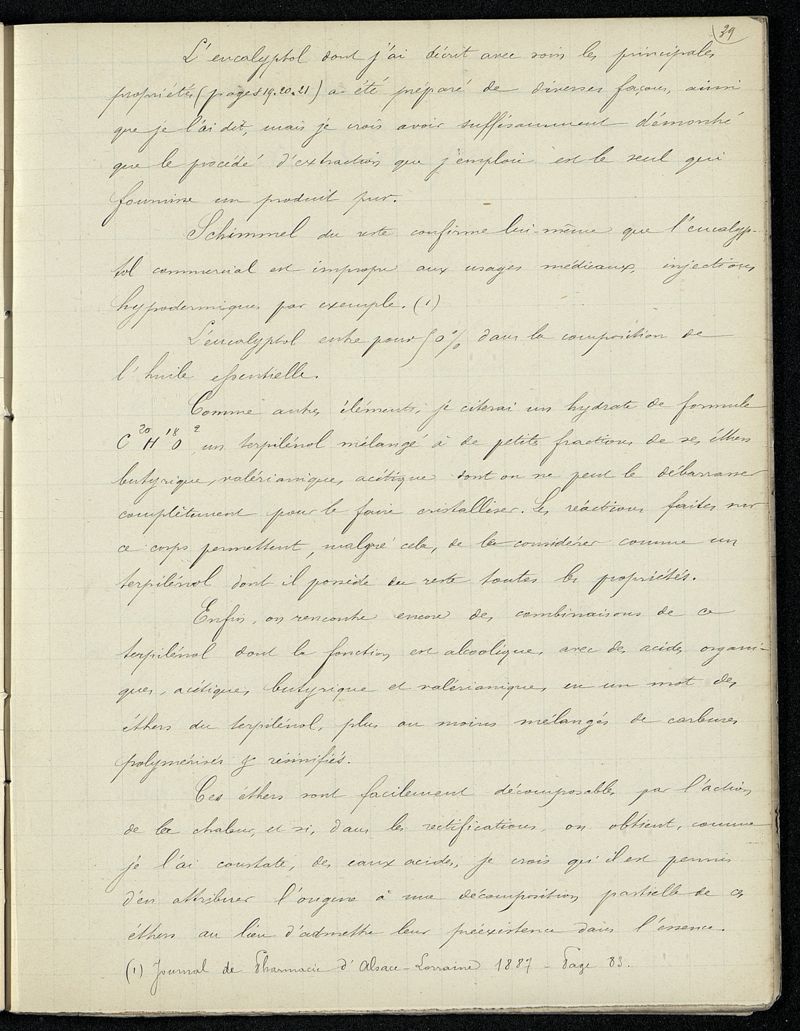 39
L'eucalyptol dont j'ai décrit avec soin les principales
propriétés (pages 19.20.21) a été préparé de diverses façons, ainsi
que je l'ai dit, mais je crois avoir suffisamment démontré
que le procédé d'extraction que j'emploie est le seul qui
fournisse un produit pur.
Schimmel du reste confirme lui-même que l'eucalyp-
tol commercial est impropre aux usages médicaux, injections
hypodermiques par exemple. (1)
L'eucalyptol entre pour 50% dans la composition de
l'huile essentielle.
Comme autres éléments, je citerai un hydrate de formule
C²⁰ H¹⁸ O², un terpilénol mélangé à de petites fractions de ses éthers
butyrique, valérianique, acétique dont on ne peut le débarrasser
complètement pour le faire cristalliser. Les réactions faites sur
ce corps permettent, malgré cela, de le considérer comme un
terpilénol dont il possède du reste toutes les propriétés.
Enfin, on rencontre encore des combinaisons de ce
terpilénol dont la fonction est alcoolique, avec des acides organi-
ques, acétique, butyrique et valérianique, en un mot des
éthers du terpilénol, plus ou moins mélangés de carbures
polymérisés résinifiés.
Ces éthers sont facilement décomposables par l'action
de la chaleur, et si, dans les rectifications, on obtient, comme
je l'ai constaté, des eaux acides, je crois qu'il est permis
d'en attribuer l'origine à une décomposition partielle de ces
éthers au lieu d'admettre leur préexistence dans l'essence.
(1) Journal de Pharmacie d'Alsace-Lorraine 1887 - Page 83.